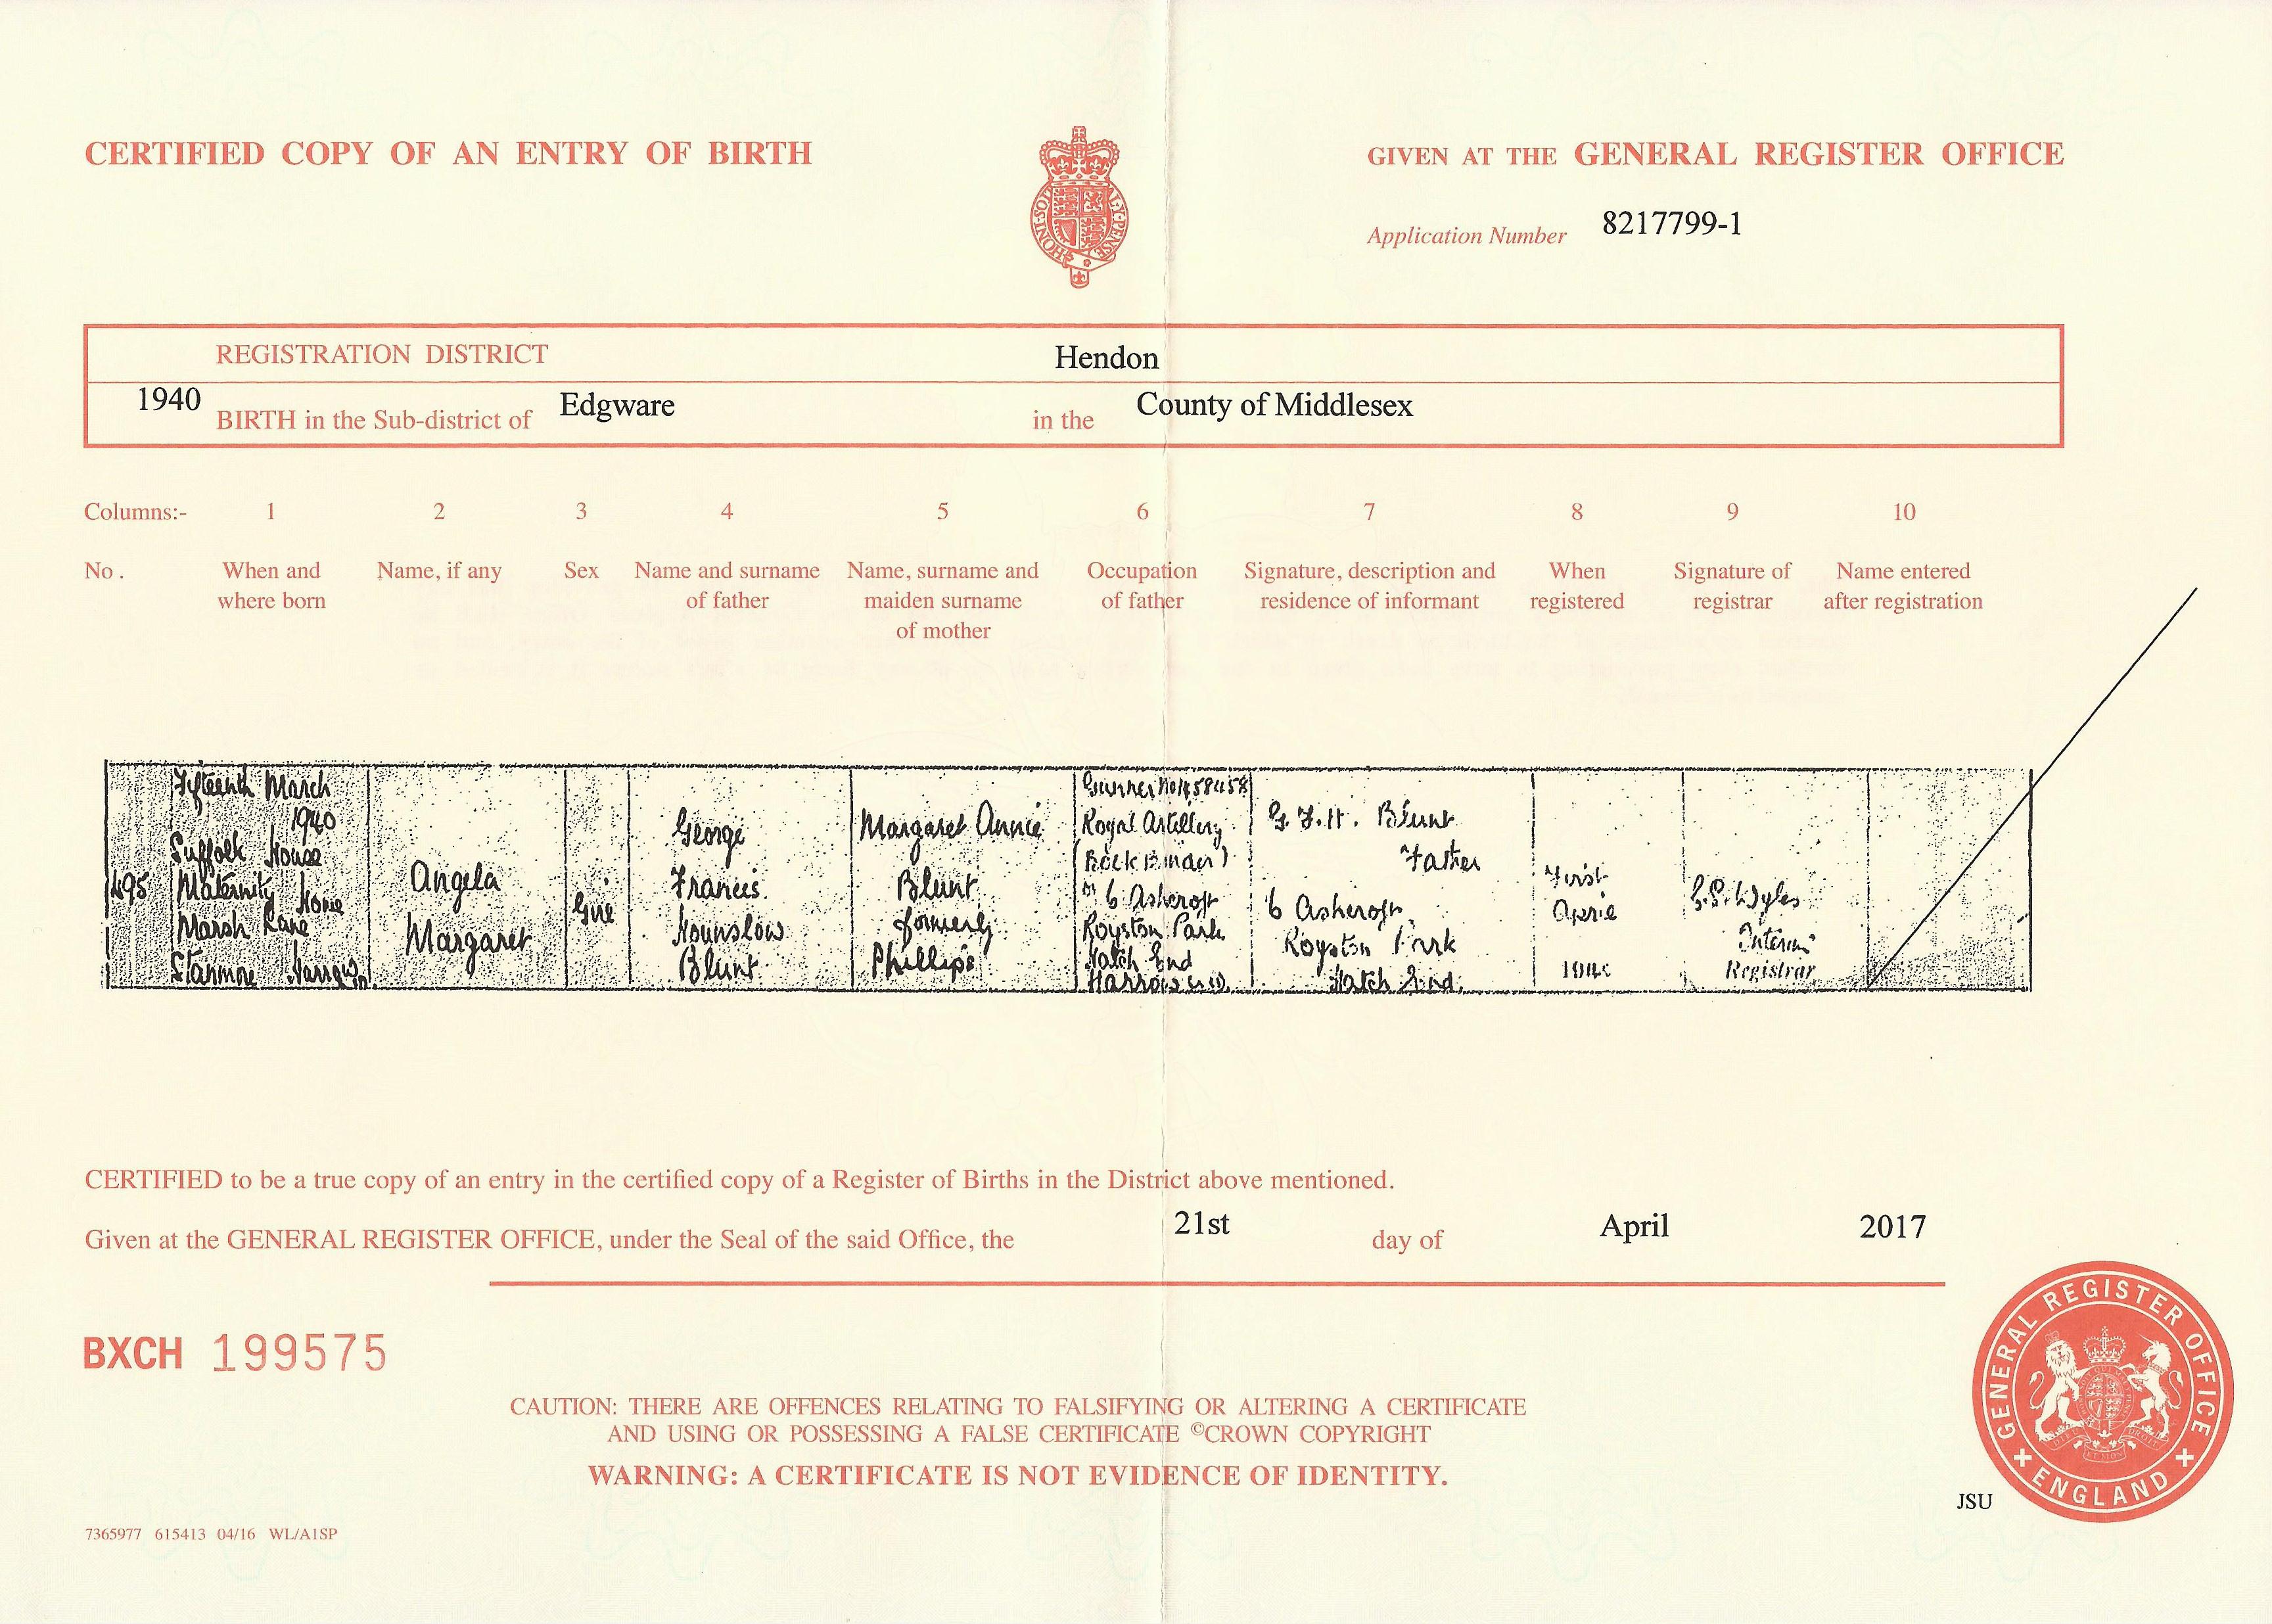 CERTIFIED COPY OF AN ENTRY OF BIRTH
GIVEN AT THE GENERAL REGISTER OFFICE
Application Number 8217799-1
REGISTRATION DISTRICT Hendon
1940 BIRTH in the Sub-district of Edgware in the County of Middlesex
Columns:- 1 2 3 4 5 6 7 8 9 10
No. When and where born
Name, if any
Sex
Name and surname of father
Name, surname and maiden surname of mother
Occupation of father
Signature, description and residence of informant
When registered
Signature of registrar
Name entered after registration
495
Fifteenth March
1940
Suffolk House
Maternity Home
Marsh Lane
Stanmore Harrow
Angela
Margaret
Girl
George
Francis
Hounslow
Blunt
Margaret Annie
Blunt
formerly
Phillips
Gunner
Royal Artillery
of 6 Ashcroft
Royston Park
Hatch End
Harrow
G. F. H. Blunt
Father
6 Ashcroft
Royston Park
Hatch End
First
April
Interim
Registrar
CERTIFIED to be a true copy of an entry in the certified copy of a Register of Births in the District above mentioned.
Given at the GENERAL REGISTER OFFICE, under the Seal of the said Office, the 21st day of April 2017
BXCH 199575
CAUTION: THERE ARE OFFENCES RELATING TO FALSIFYING OR ALTERING A CERTIFICATE
AND USING OR POSSESSING A FALSE CERTIFICATE ©CROWN COPYRIGHT
WARNING: A CERTIFICATE IS NOT EVIDENCE OF IDENTITY.
GENERAL REGISTER OFFICE
ENGLAND
JSU
7365977 615413 04/16 WL/A1SP